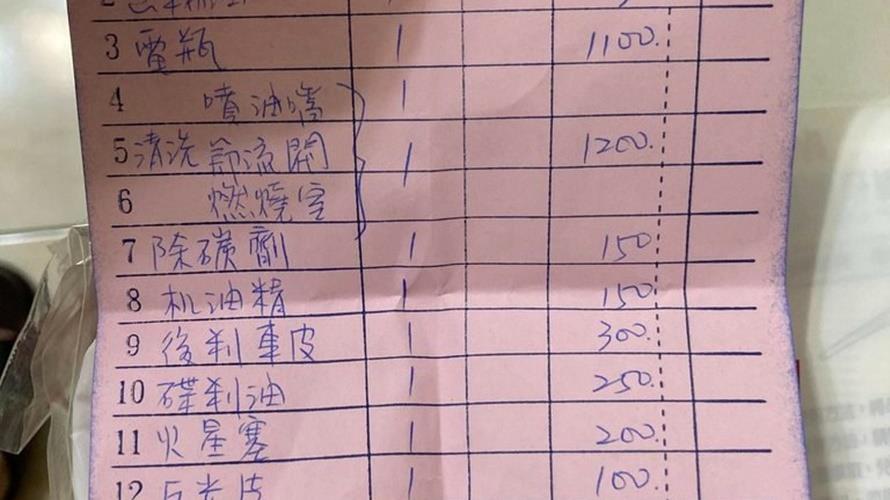 3 電瓶 1 1100.
4 噴油嘴 1
5 清洗 節流閥 1 1200.
6 燃燒室
7 除碳劑 1 150
8 机油精 1 150.
9 後刹車皮 1 300.
10 碟刹油 1 250.
11 火星塞 1 200.
12 1 100.